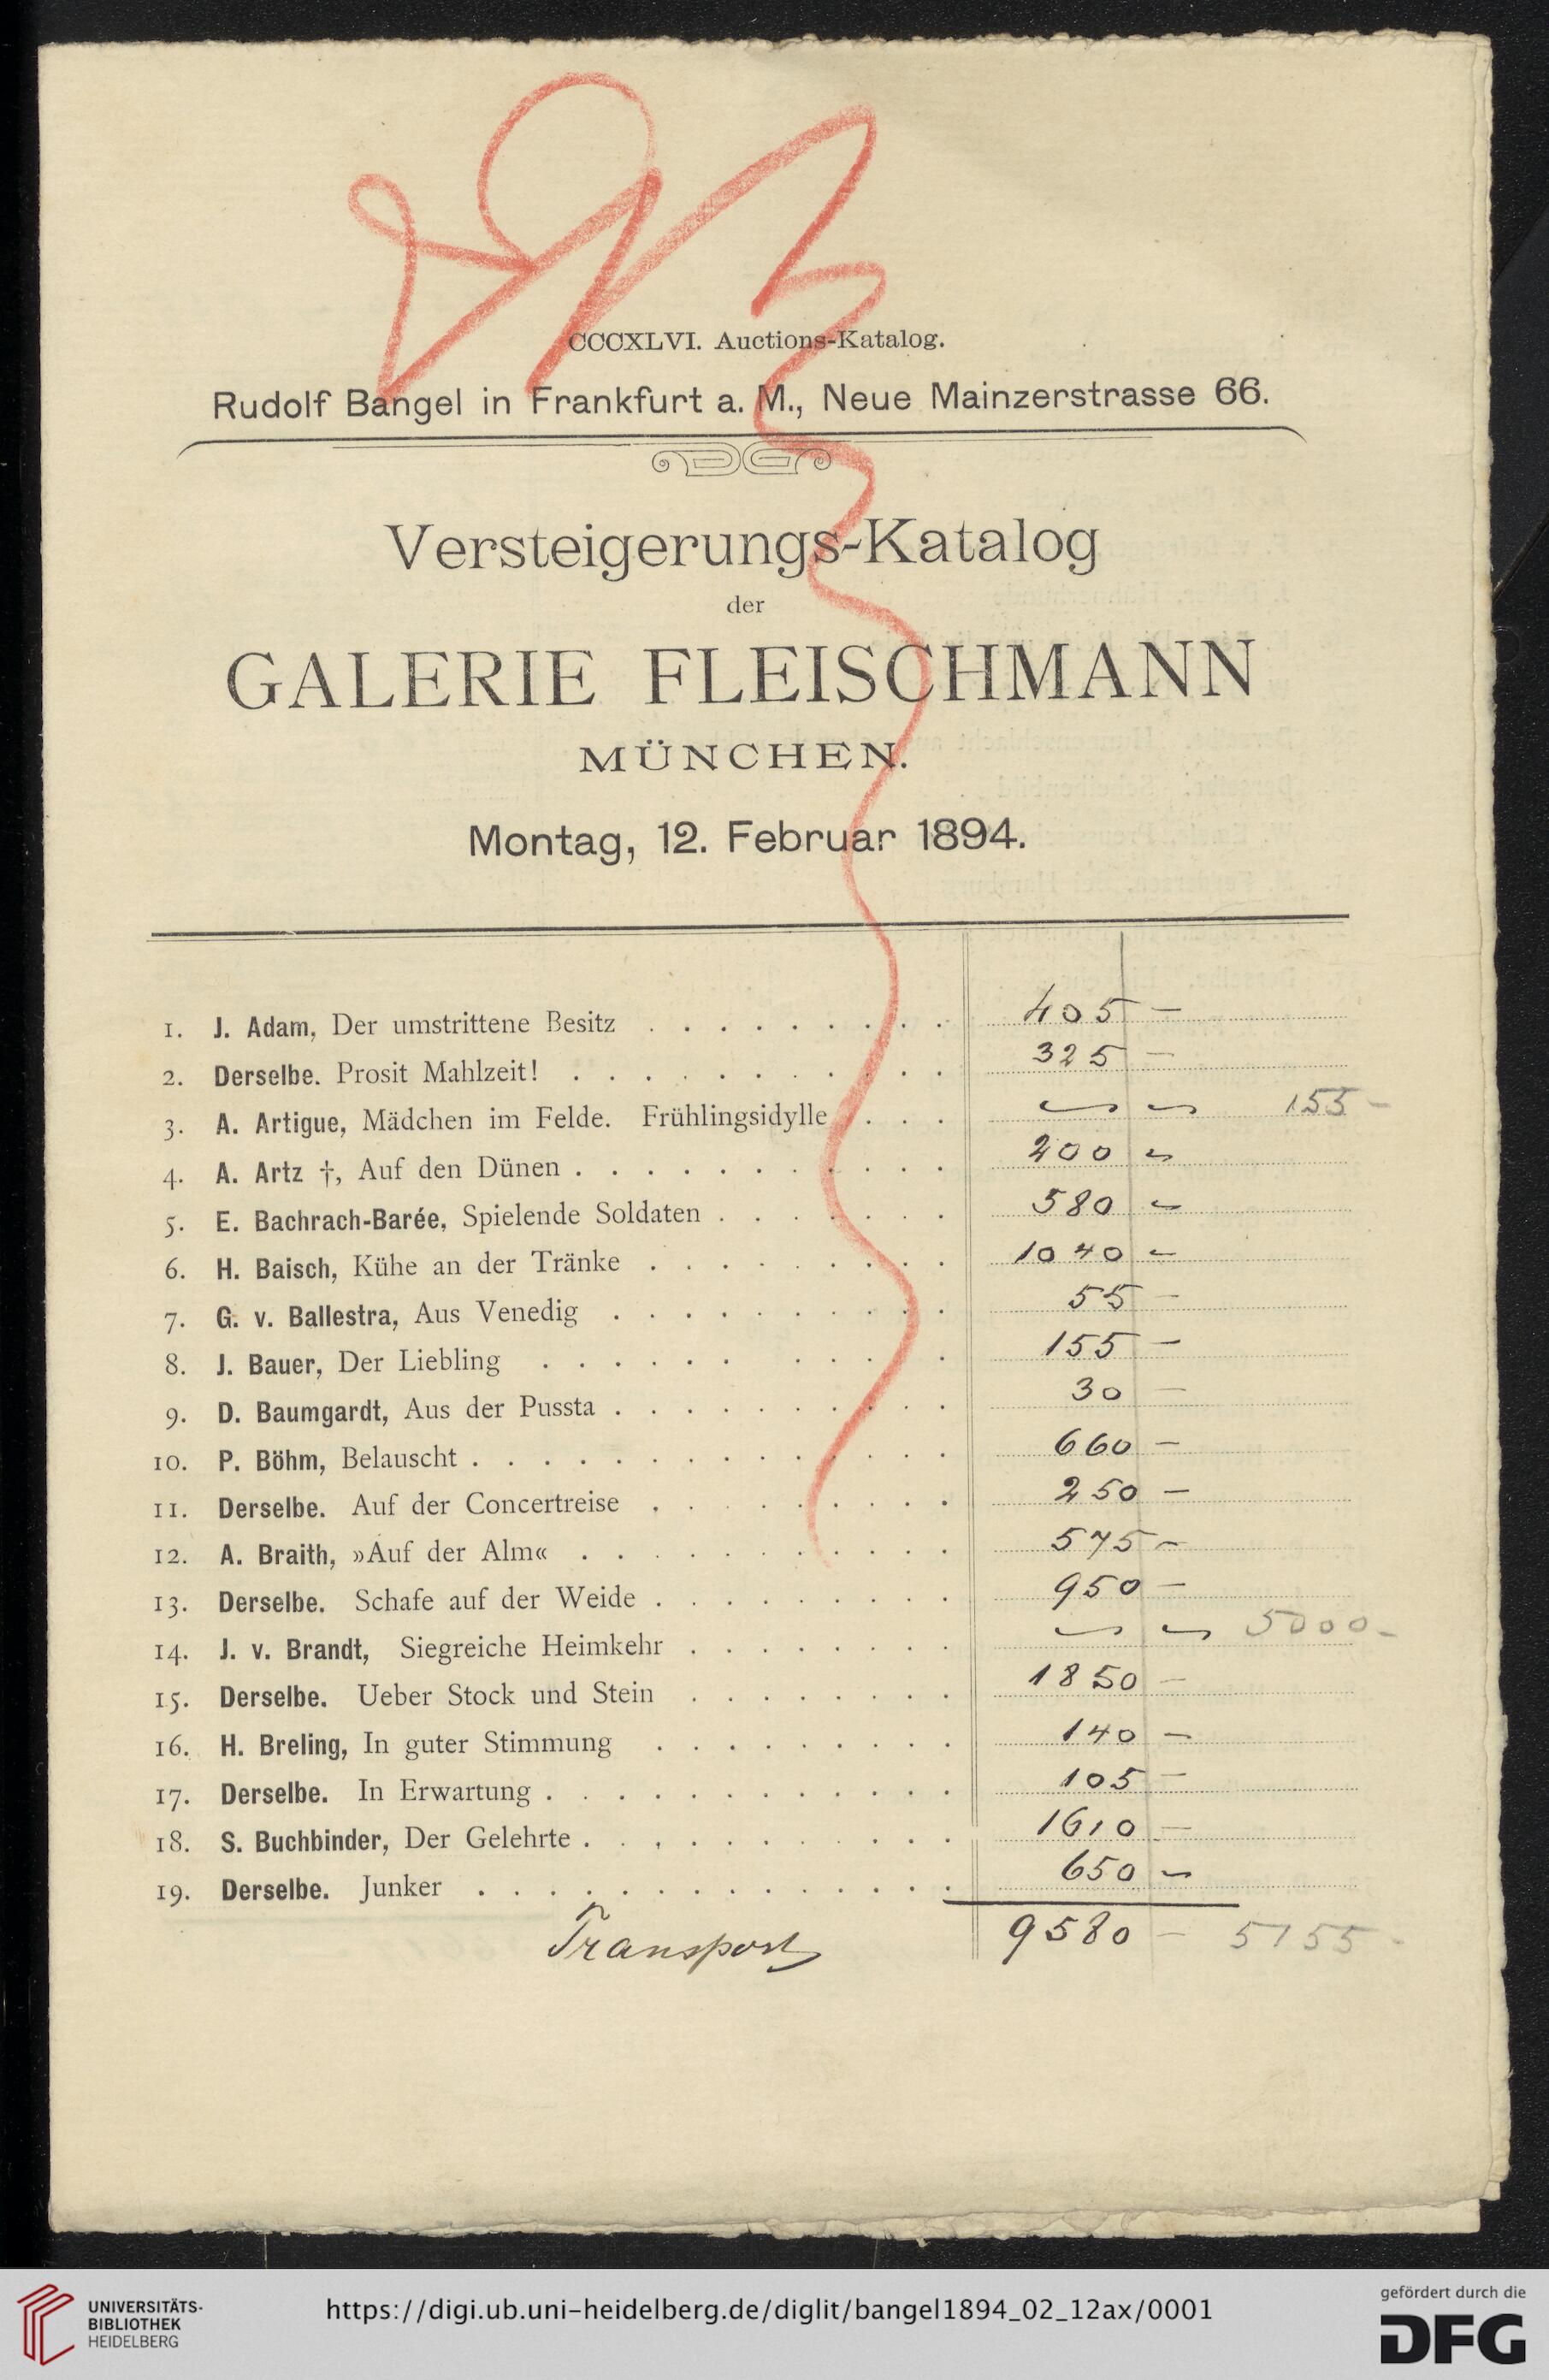 CCCXLVI. Auctions-Katalog.
Rudolf Bangel in Frankfurt a. M., Neue Mainzerstrasse 66.
Versteigerungs-Katalog
der
GALERIE FLEISCHMANN
MÜNCHEN.
Montag, 12. Februar 1894.
1. J. Adam, Der umstrittene Besitz . . . . . . . . . 405 —
2. Derselbe. Prosit Mahlzeit! . . . . . . . . . . . 325 —
3. A. Artigue, Mädchen im Felde. Frühlingsidylle . . . ~ ~ 155 –
4. A. Artz †, Auf den Dünen . . . . . . . . . . . 200 ~
5. E. Bachrach-Barée, Spielende Soldaten . . . . . . . 580 ~
6. H. Baisch, Kühe an der Tränke . . . . . . . . . 1040 ~
7. G. v. Ballestra, Aus Venedig . . . . . . . . . . 55 —
8. J. Bauer, Der Liebling . . . . . . . . . . . 155 —
9. D. Baumgardt, Aus der Pussta . . . . . . . . . . 30 —
10. P. Böhm, Belauscht . . . . . . . . . . . . . . 660 —
11. Derselbe. Auf der Concertreise . . . . . . . . . 250 —
12. A. Braith, »Auf der Alm« . . . . . . . . . . . 575 ~
13. Derselbe. Schafe auf der Weide . . . . . . . . . 950 —
14. J. v. Brandt, Siegreiche Heimkehr . . . . . . . . ~ ~ 5000 –
15. Derselbe. Ueber Stock und Stein . . . . . . . . 1850 —
16. H. Breling, In guter Stimmung . . . . . . . . . 140 —
17. Derselbe. In Erwartung . . . . . . . . . . . . 105 —
18. S. Buchbinder, Der Gelehrte . . . . . . . . . . . 1610 —
19. Derselbe. Junker . . . . . . . . . . . . . . 650 ~
Transport 9580 — 5155 -
UNIVERSITÄTS-
BIBLIOTHEK
HEIDELBERG
https://digi.ub.uni-heidelberg.de/diglit/bangel1894_02_12ax/0001
gefördert durch die
DFG